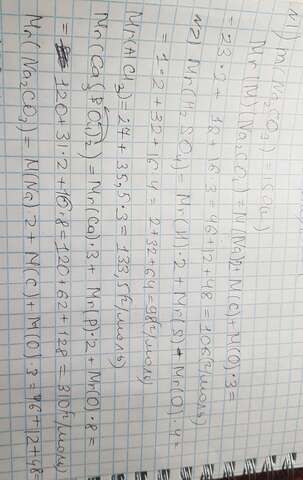 N1) m(Na₂CO₃) = 150(г)
Mr(M)(Na₂CO₃) = M(Na)+M(C)+M(O)·3 =
= 23·2 + 12 + 16·3 = 46+12+48 = 106(г/моль)
N2) Mr(H₂SO₄) = Mr(H)·2 + Mr(S) + Mr(O)·4 =
= 1·2 + 32 + 16·4 = 2+32+64 = 98(г/моль)
Mr(AlCl₃) = 27 + 35,5·3 = 133,5(г/моль)
Mr(Ca₃(PO₄)₂) = Mr(Ca)·3 + Mr(P)·2 + Mr(O)·8 =
= 120 + 31·2 + 16·8 = 120 + 62 + 128 = 310(г/моль)
Mr(Na₂CO₃) = M(Na)·2 + M(C) + M(O)·3 = 46+12+48